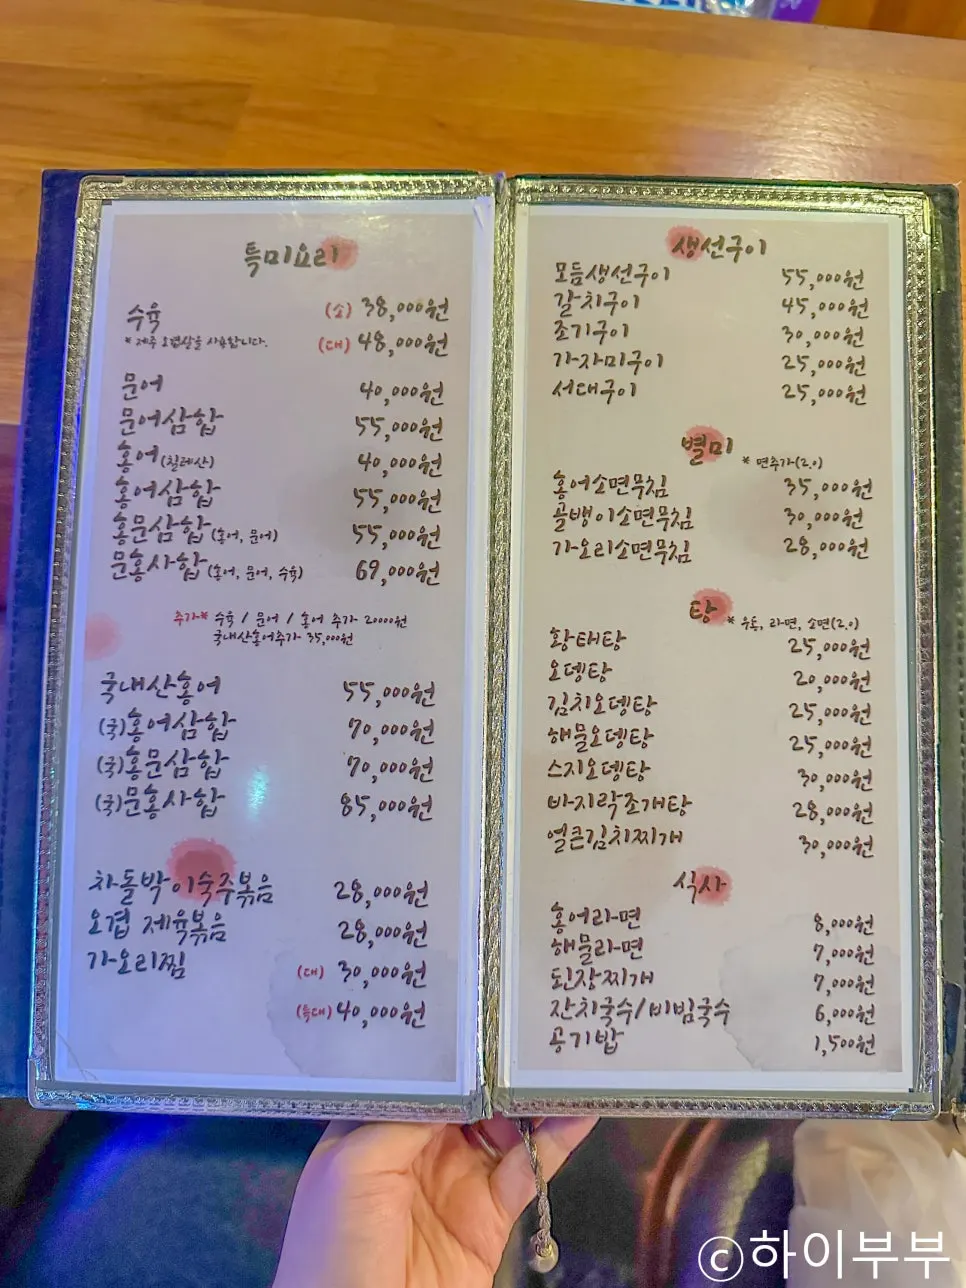 특미요리
수육 (소) 38,000원
* 제주 오겹살을 사용합니다. (대) 48,000원
문어 40,000원
문어삼합 55,000원
홍어(칠레산) 40,000원
홍어삼합 55,000원
홍문삼합(홍어, 문어) 55,000원
문홍사합(홍어, 문어, 수육) 69,000원
추가* 수육 / 문어 / 홍어 추가 20000원
국내산홍어추가 35,000원
국내산홍어 55,000원
(국)홍어삼합 70,000원
(국)홍문삼합 70,000원
(국)문홍사합 85,000원
차돌박이숙주볶음 28,000원
오겹 제육볶음 28,000원
가오리찜 (대) 30,000원
(특대) 40,000원
생선구이
모듬생선구이 55,000원
갈치구이 45,000원
조기구이 30,000원
가자미구이 25,000원
서대구이 25,000원
별미 * 면추가(2.0)
홍어소면무침 35,000원
골뱅이소면무침 30,000원
가오리소면무침 28,000원
탕 * 우동, 라면, 소면(2.0)
황태탕 25,000원
오뎅탕 20,000원
김치오뎅탕 25,000원
해물오뎅탕 25,000원
스지오뎅탕 30,000원
바지락조개탕 28,000원
얼큰김치찌개 30,000원
식사
홍어라면 8,000원
해물라면 7,000원
된장찌개 7,000원
잔치국수/비빔국수 6,000원
공기밥 1,500원
©하이부부